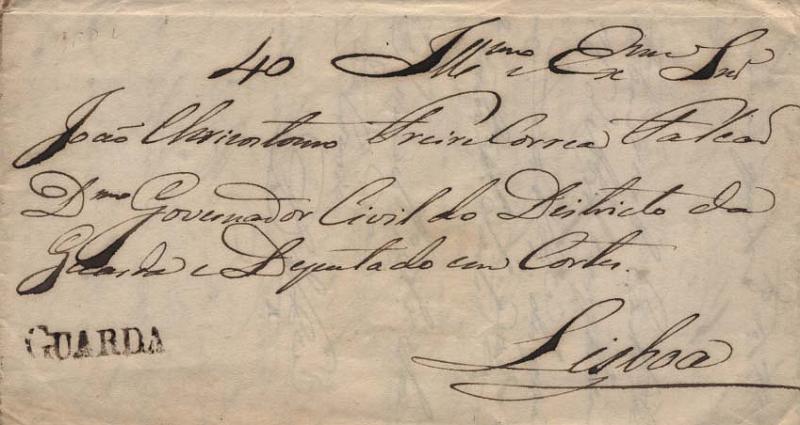 40 Illmo e Exmo Snr
João Chrisostomo Freire Correa Falcão
Dmo Governador Civil do Districto da
Guarda e Deputado em Cortes.
Lisboa
GUARDA